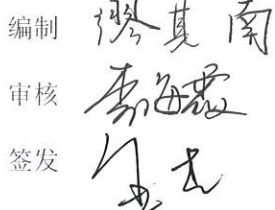 编制 缪其南
审核 李海霞
签发